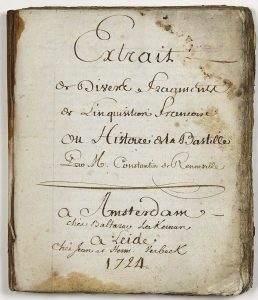 Extrait
de Divers Fragments
de L'inquisition Francoise
ou Histoire de la Bastille
Par Mr. Constantin de Renneville
a Amsterdam
chés Baltazar Lakeman
a Leide
chés Jean et Henri Verbeek
1724